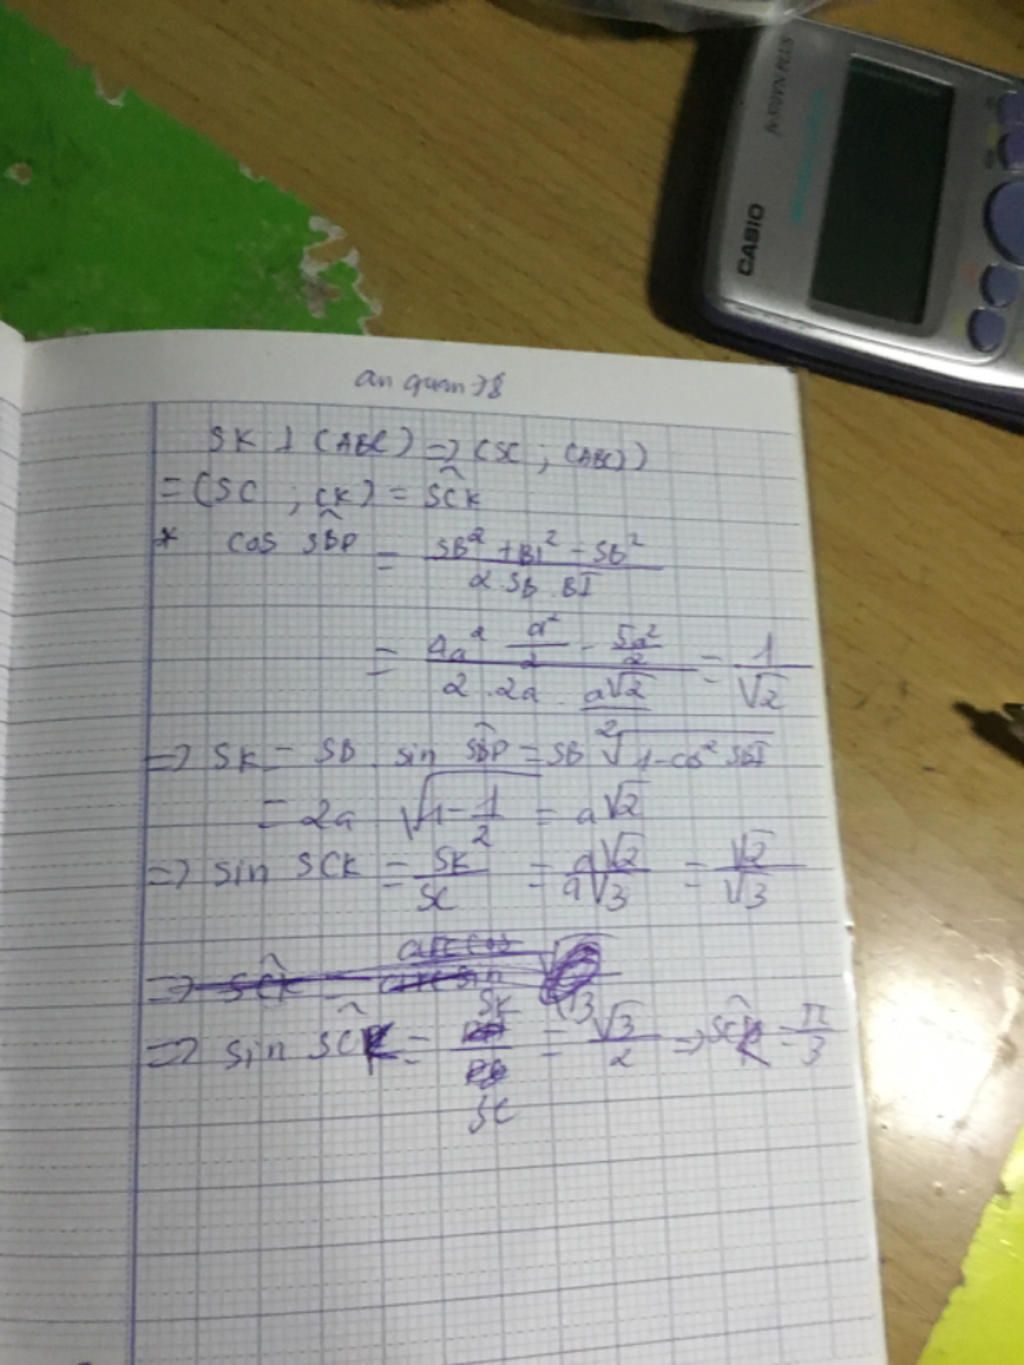 CASIO
fx-570VN PLUS
an quan 78
SK ⊥ (ABC) => (SC ; (ABC))
= (SC ; CK) = SĈK
* cos SB̂P = (SB² + BI² - SB²) / (2.SB.BI)
= (4a² a²/2 - 5a²/2) / (2.2a.a√2/2) = 1/√2
=> SK = SB. sin SB̂P = SB √(1-cos² SBI)
= 2a √(1-1/2) = a√2
=> sin SCK = SK/SC = a√2/a√3 = √2/√3
=> sin SĈK = SK/SC = √3/2 => SĈK = π/3